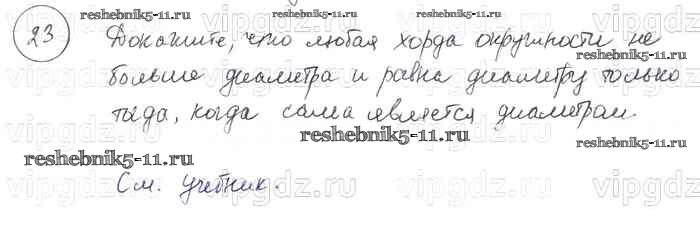 reshebnik5-11.ru
23 Докажите, что любая хорда окружности не
reshebnik5-11.ru
больше диаметра и равна диаметру только
vipgdz.ru vipgdz.ru vipgdz.ru
тогда, когда сама является диаметром.
reshebnik5-11.ru
reshebnik5-11.ru
reshebnik5-11.ru
См. учебник.
vipgdz.ru vipgdz.ru vipgdz.ru